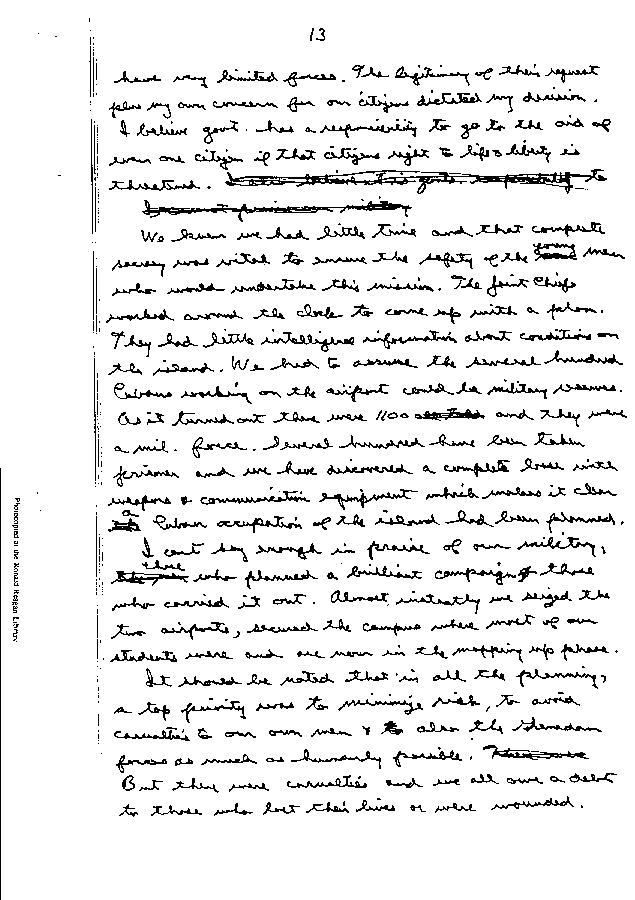 13
have very limited forces. The legitimacy of their request
plus my own concern for our citizens dictated my decision.
I believe govt. has a responsibility to go to the aid of
even one citizen if that citizens right to life & liberty is
threatened. to
We knew we had little time and that complete
secrecy was vital to ensure the safety of the young men
who would undertake this mission. The Joint Chiefs
worked around the clock to come up with a plan.
They had little intelligence information about conditions on
the island. We had to assume the several hundred
Cubans working on the airport could be military reserves.
As it turned out there were 1100 and they were
a mil. force. Several hundred have been taken
prisoner and we have discovered a complete base with
weapons & communication equipment which makes it clear
a Cuban occupation of the island had been planned.
I can't say enough in praise of our military,
those who planned a brilliant campaign & those
who carried it out. Almost instantly we seized the
two airports, secured the campus where most of our
students were and are now in the mopping up phase.
It should be noted that in all the planning,
a top priority was to minimize risk, to avoid
casualties to our own men & also the Grenadan
forces as much as humanly possible.
But there were casualties and we all owe a debt
to those who lost their lives or were wounded.
Photocopied at the Ronald Reagan Library